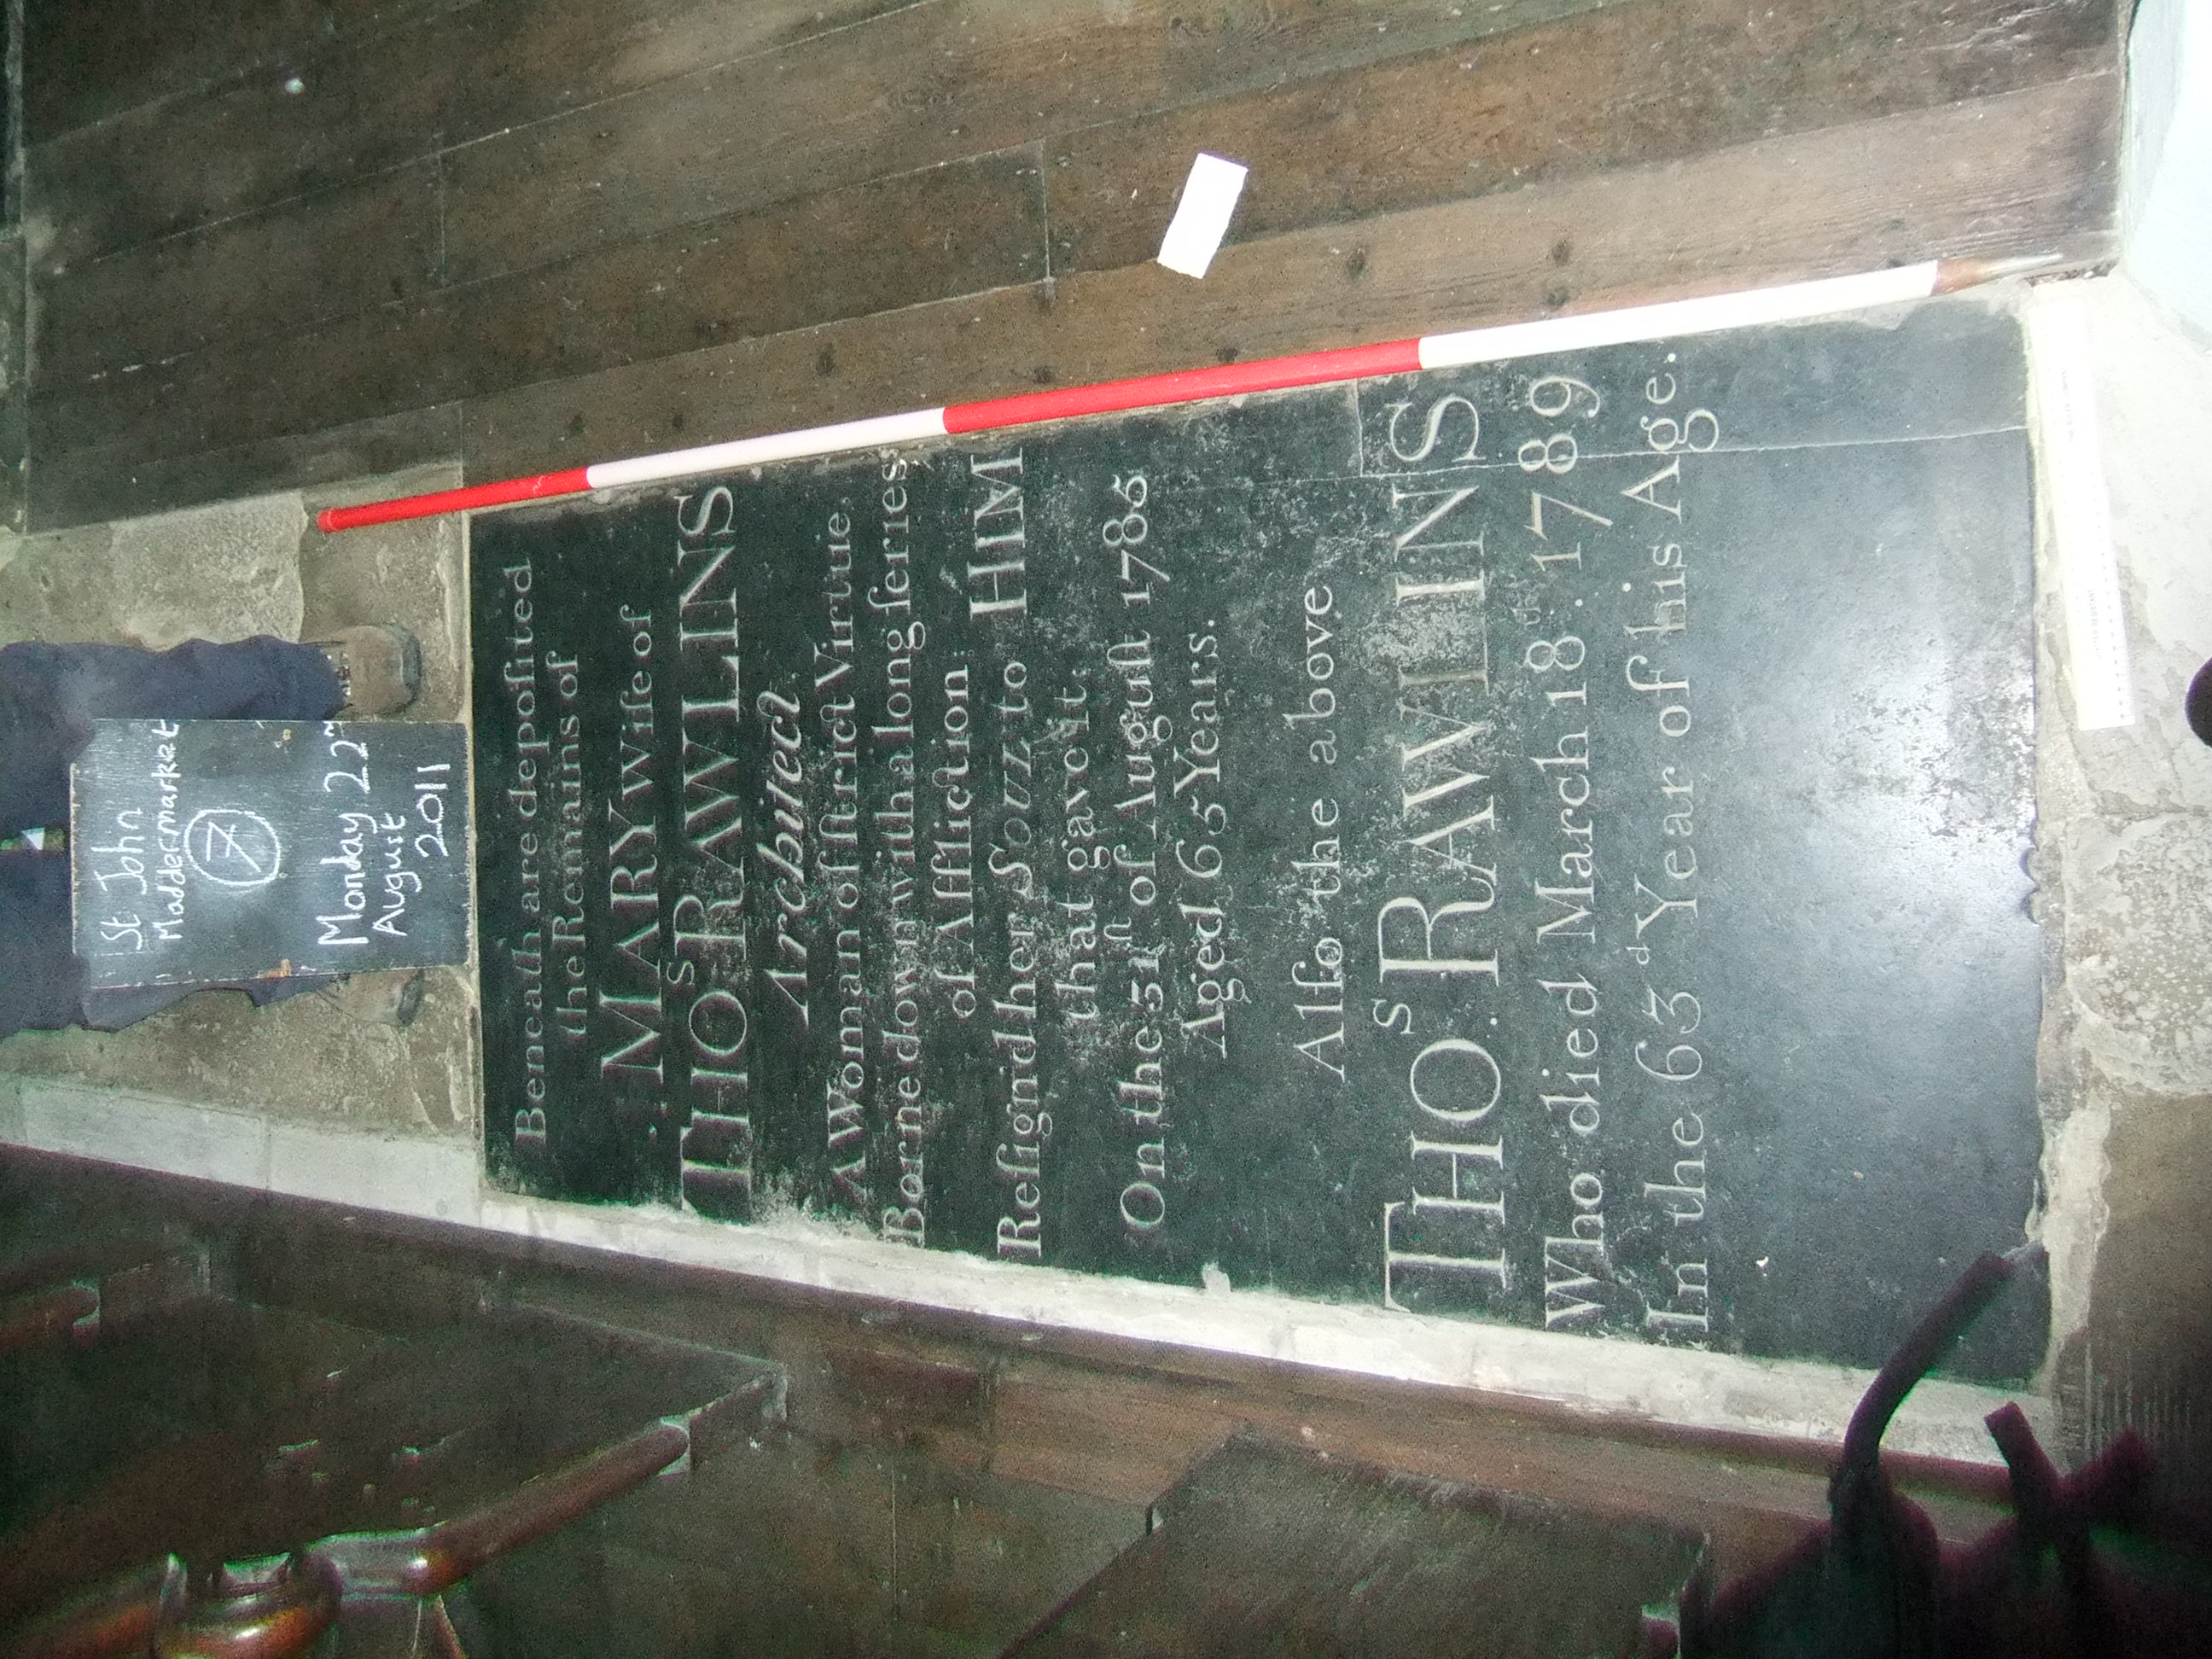 St. John
Maddermarket
7
Monday 22nd
August
2011
Beneath are depoſited
the Remains of
MARY Wife of
THO.S RAWLINS
Architect
A Woman of ſtrict Virtue,
Borne down with a long ſeries
of Affliction:
Reſign'd her Soul to HIM
that gave it,
On the 31ſt of Auguſt 1786
Aged 65 Years.
Alſo the above
THO.S RAWLINS
Who died March 18th. 1789
In the 63d Year of his Age.